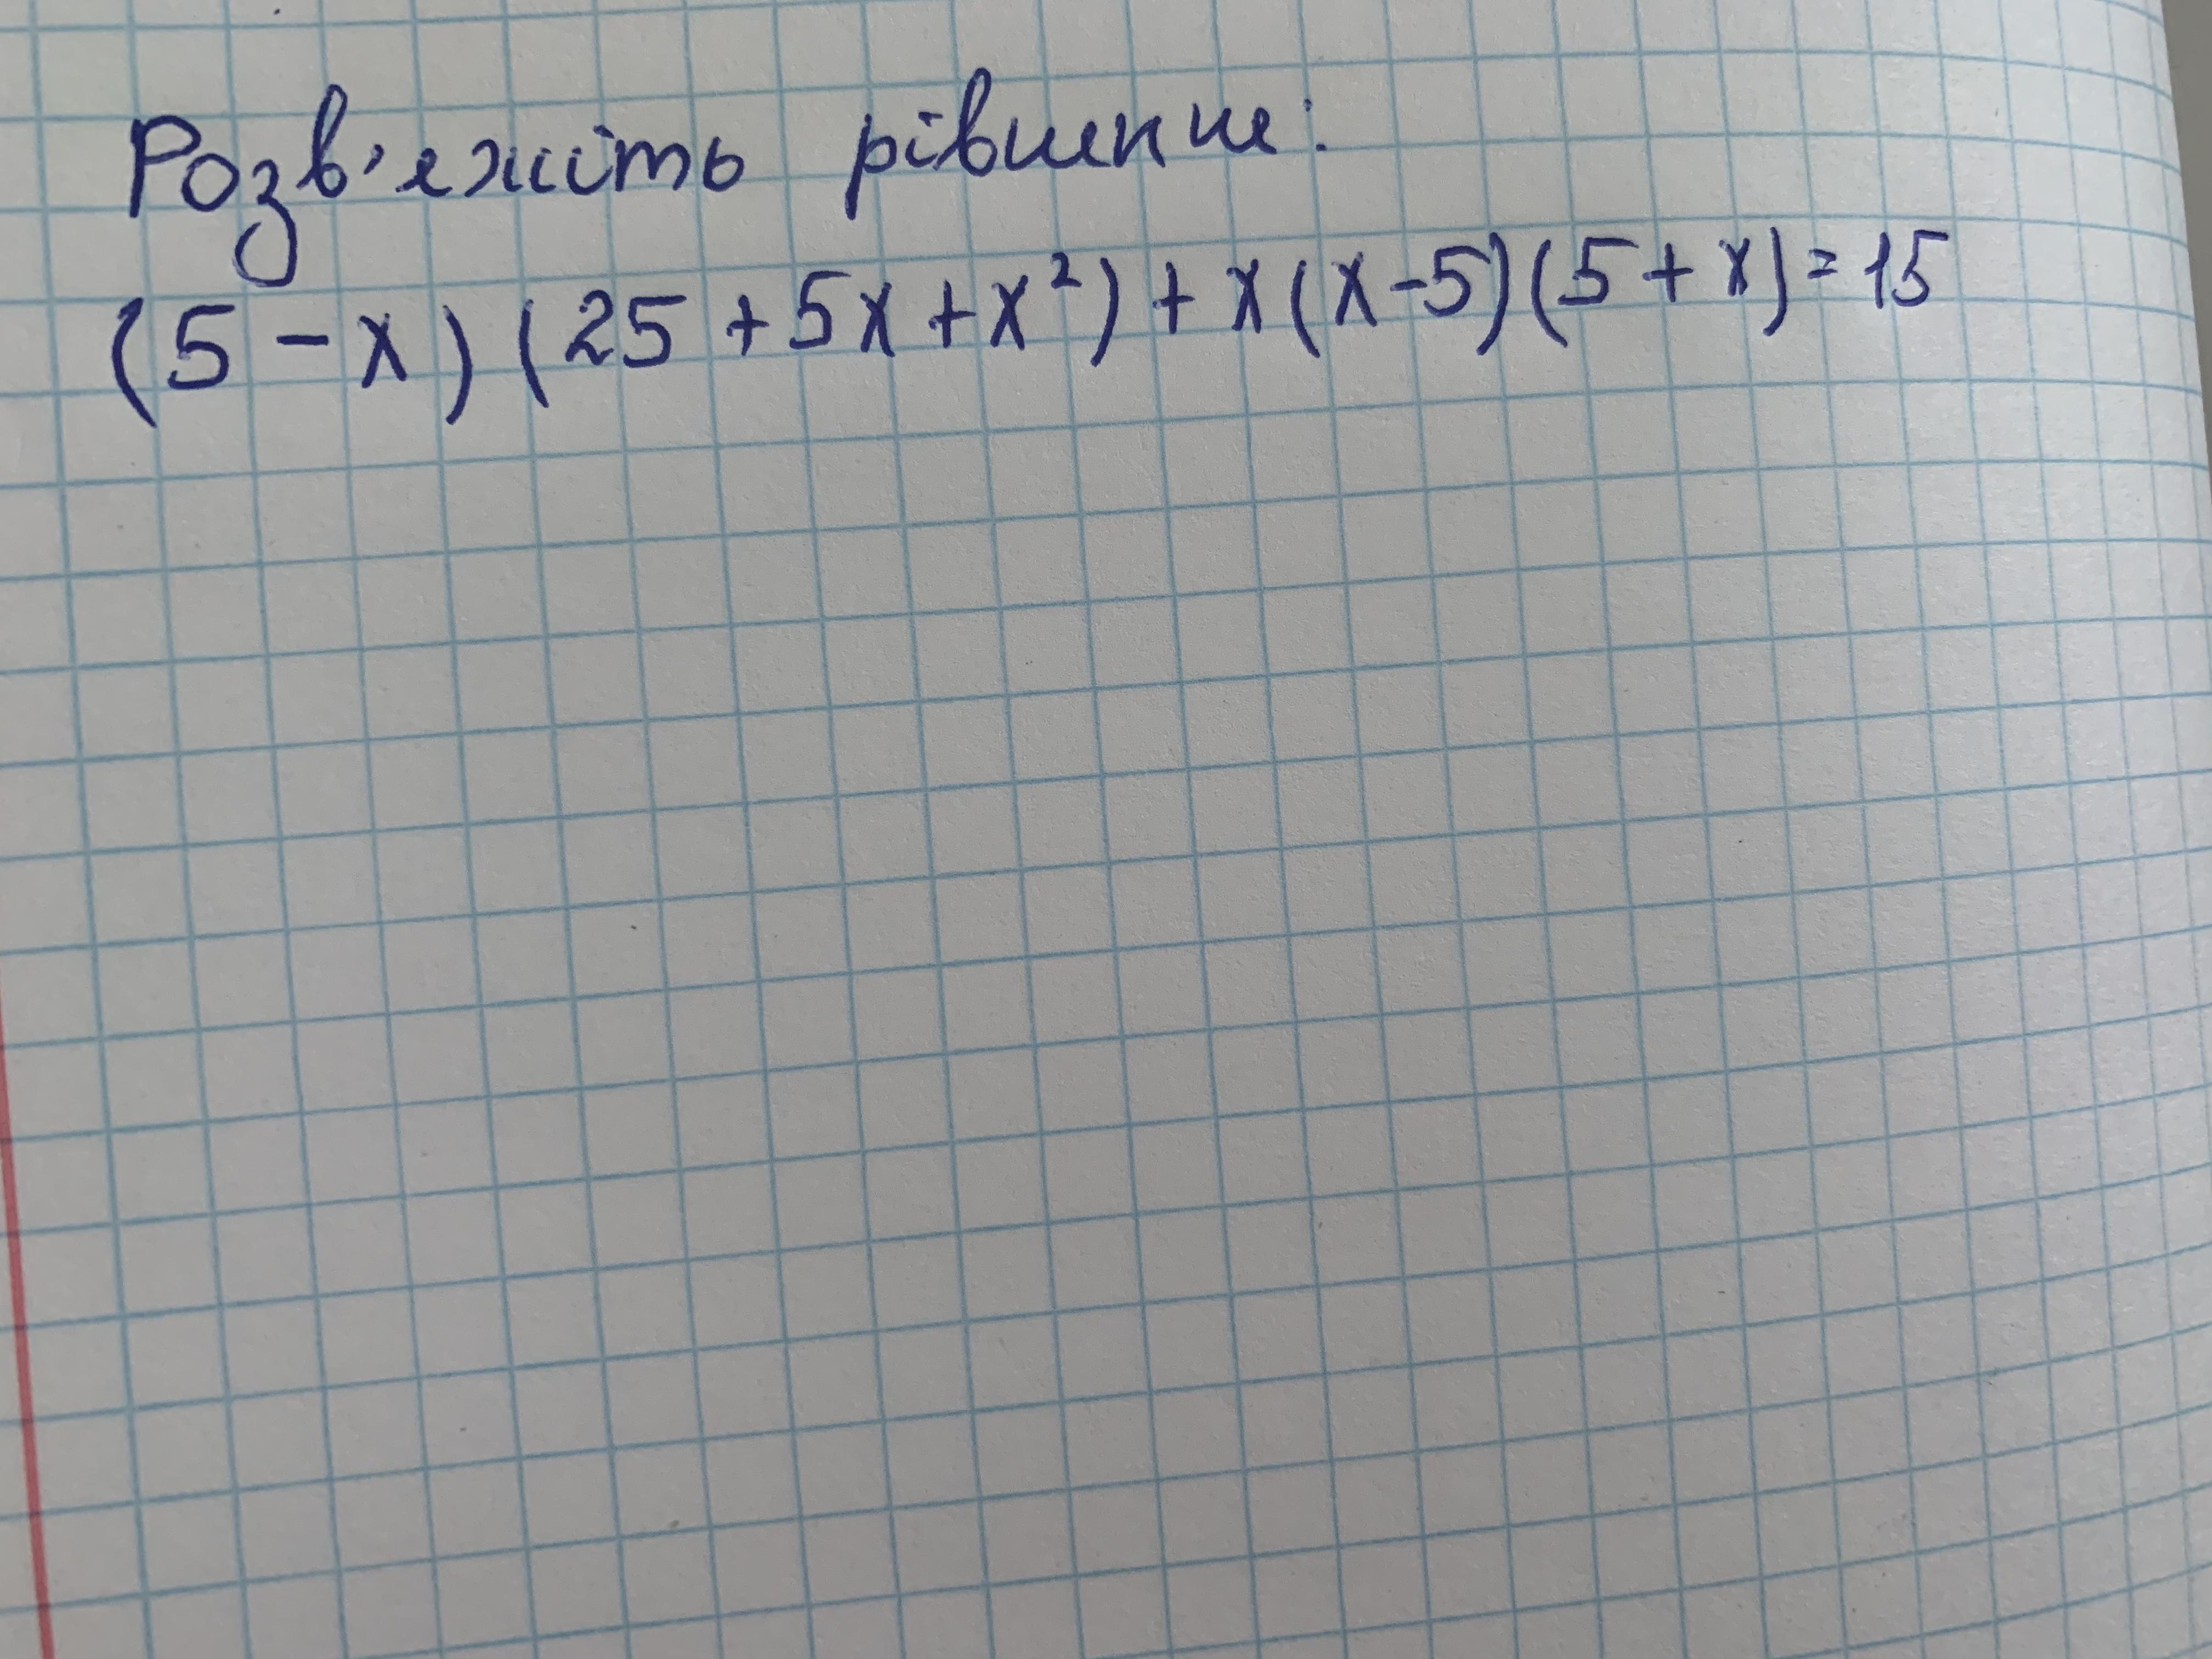 Розв'яжіть рівняння:
(5 - x) (25 + 5x + x²) + x (x - 5) (5 + x) = 15